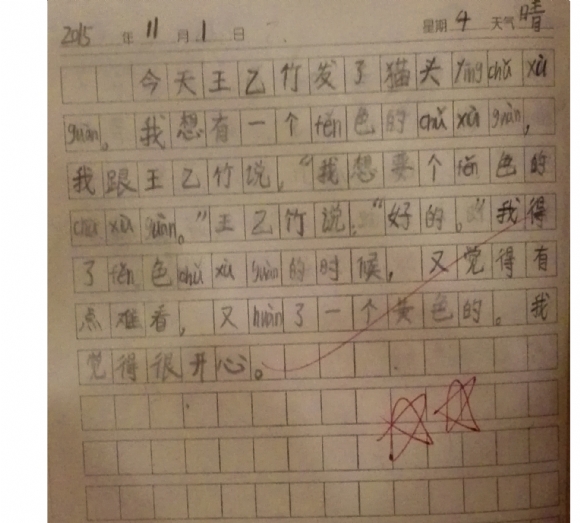 2015 年 11 月 1 日 星期 4 天气 晴
今天王乙竹发了猫头yīng chǔ xù
guàn。我想有一个fěn色的chǔ xù guàn，
我跟王乙竹说，“我想要个fěn色的
chǔ xù guàn。”王乙竹说，“好的。”我得
了fěn色chǔ xù guàn的时候，又觉得有
点难看，又huàn了一个黄色的。我
觉得很开心。